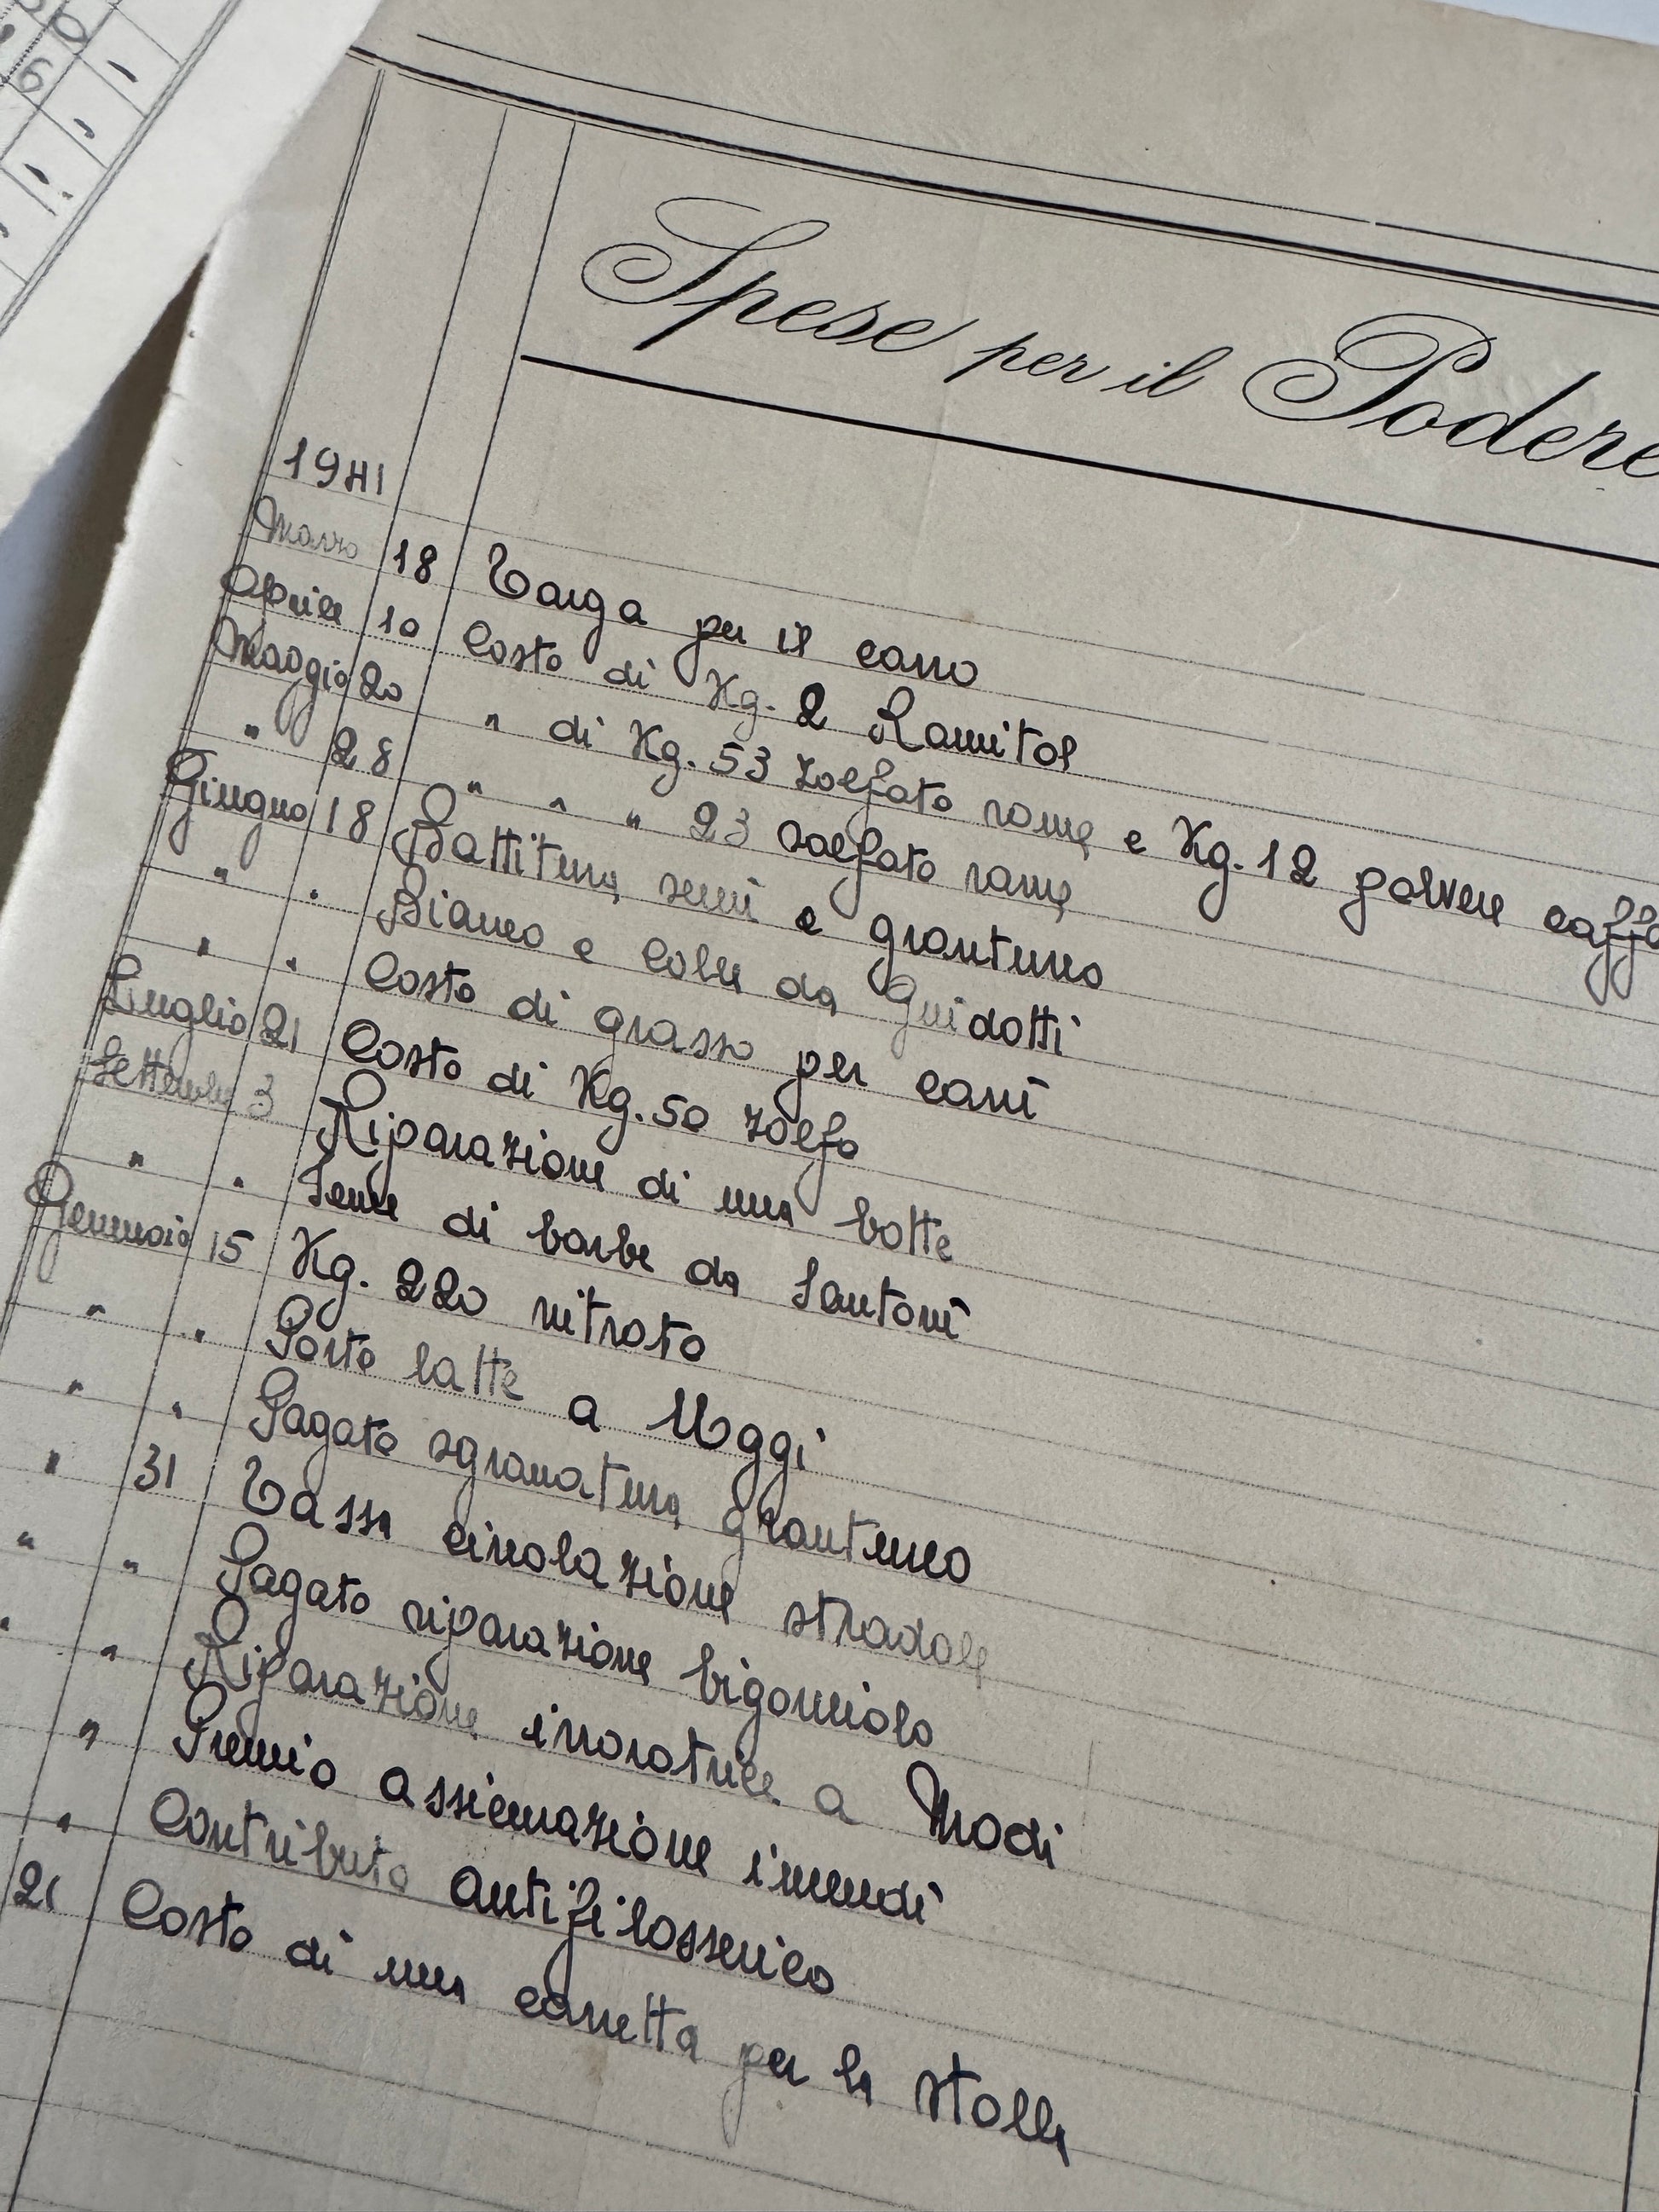 Spese per il Podere
1941
Marzo 18 Targa per il carro
Aprile 10 Costo di Kg. 2 Ramitol
Maggio 20 " di Kg. 53 zolfato rame e Kg. 12 polvere caffa
" 28 " " " 23 solfato rame
Giugno 18 Battitura semi e granturco
" " Bianco e Colla da Guidotti
" " Costo di grasso per carri
Luglio 21 Costo di Kg. 50 zolfo
Settembre 3 Riparazione di una botte
" " Seme di barbe da Santoni
Gennaio 15 Kg. 220 nitrato
" " Porto latte a Moggi
" " Pagato sgranatura granturco
" 31 Tassa circolazione stradale
" " Pagato riparazione bigonciolo
" " Riparazione irroratrice a Modi
" Premio assicurazione incendi
" Contributo antifilosserico
21 Costo di una carretta per la stalla